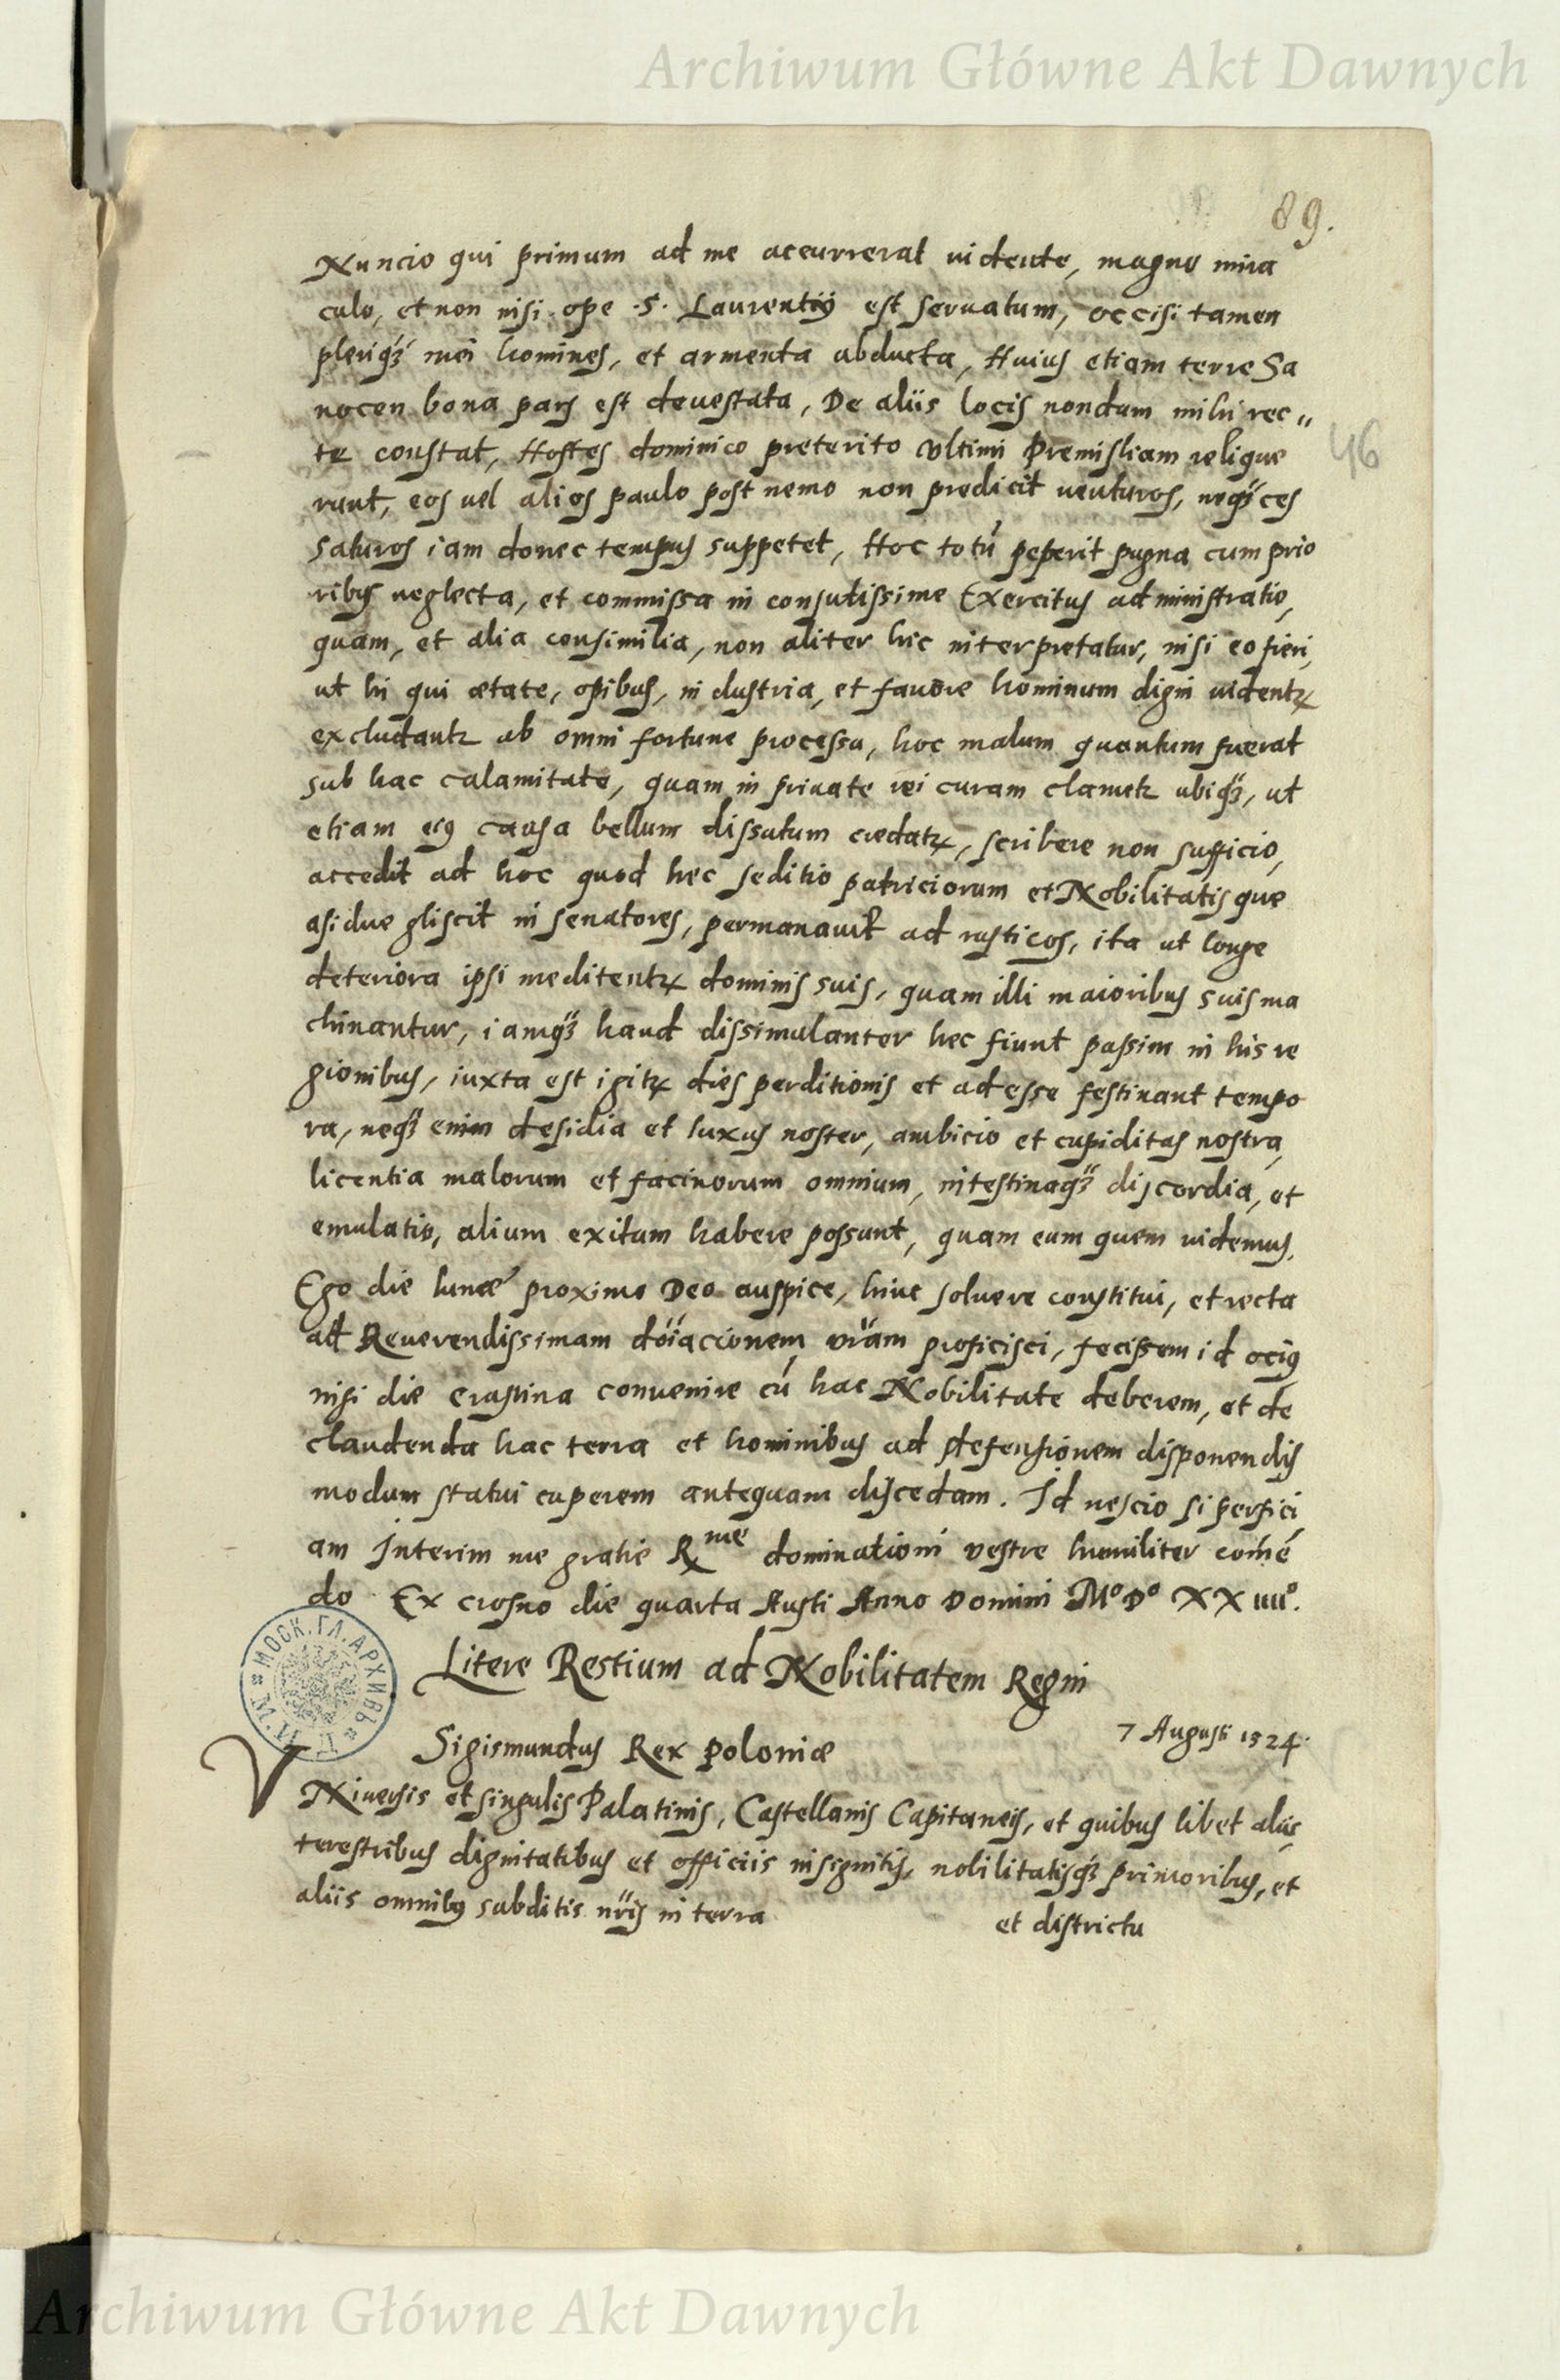 Archiwum Główne Akt Dawnych
89.
Nuncio qui primum ad me accurrerat vidente, magno mira
culo, et non nisi ope .S. Laurentij est servatum, occisi tamen
pleriq₃ mei homines, et armenta abducta, Huius etiam terre Sa
nocen bona pars est devestata, De aliis locis nondum mihi rec„
46
te constat, Hostes dominico preterito ultimi Premisliam relique
runt, eos vel alios paulo post nemo non predicit venturos, neq₃ ces
saturos iam donec tempus suppetet, Hoc totū peperit pugna cum prio
ribus neglecta, et commissa in consutissime Exercitus administratio,
quam, et alia consimilia, non aliter hic interpretatur, nisi eo fieri,
ut hi qui ætate, opibus, industria, et favore hominum digni videntr
excludantr ab omni fortune processu, hoc malum quantum fuerat
sub hac calamitate, quam in private rei curam clametr ubiq₃, ut
etiam eius causa bellum dissutum credatr, scribere non sufficio,
accedit ad hoc quod hec seditio patriciorum et Nobilitatis que
asidue gliscit in senatores, permanavit ad rusticos, ita ut longe
deteriora ipsi meditentr dominis suis, quam illi maioribus suis ma
chinantur, iamq₃ haud dissimulanter hec fiunt passim in his re
gionibus, iuxta est igitr dies perditionis et adesse festinant tempo
ra, neq₃ enim desidia et luxus noster, ambicio et cupiditas nostra,
licentia malorum et facinorum omnium, intestinaq₃ discordia, et
emulatio, alium exitum habere possunt, quam eum quem videmus.
Ego die lunæ proximo Deo auspice, hinc solvere constitui, et recta
ad Reverendissimam doiacionem vram proficisci, fecissem id ocius
nisi die crastina convenire cū hac Nobilitate deberem, et de
claudenda hac terra et hominibus ad defensionem disponendis
modum statui cuperem antequam discedam. Id nescio si perfici
am Interim me gratie Rme dominationi vestre humiliter comē
do Ex crosno die quarta Austi Anno Domini Mº Dº XXIIIIº.
Litere Restium ad Nobilitatem Regni
7 Augusti 1524.
Sigismundus Rex Poloniæ
VNiversis et singulis Palatinis, Castellanis Capitaneis, et quibus libet aliis
terestribus dignitatibus et officiis insignitis, nobilitatisq₃ primoribus, et
aliis omnibus subditis nris in terra et districtu
МОСК. ГЛ. АРХИВЪ
Archiwum Główne Akt Dawnych